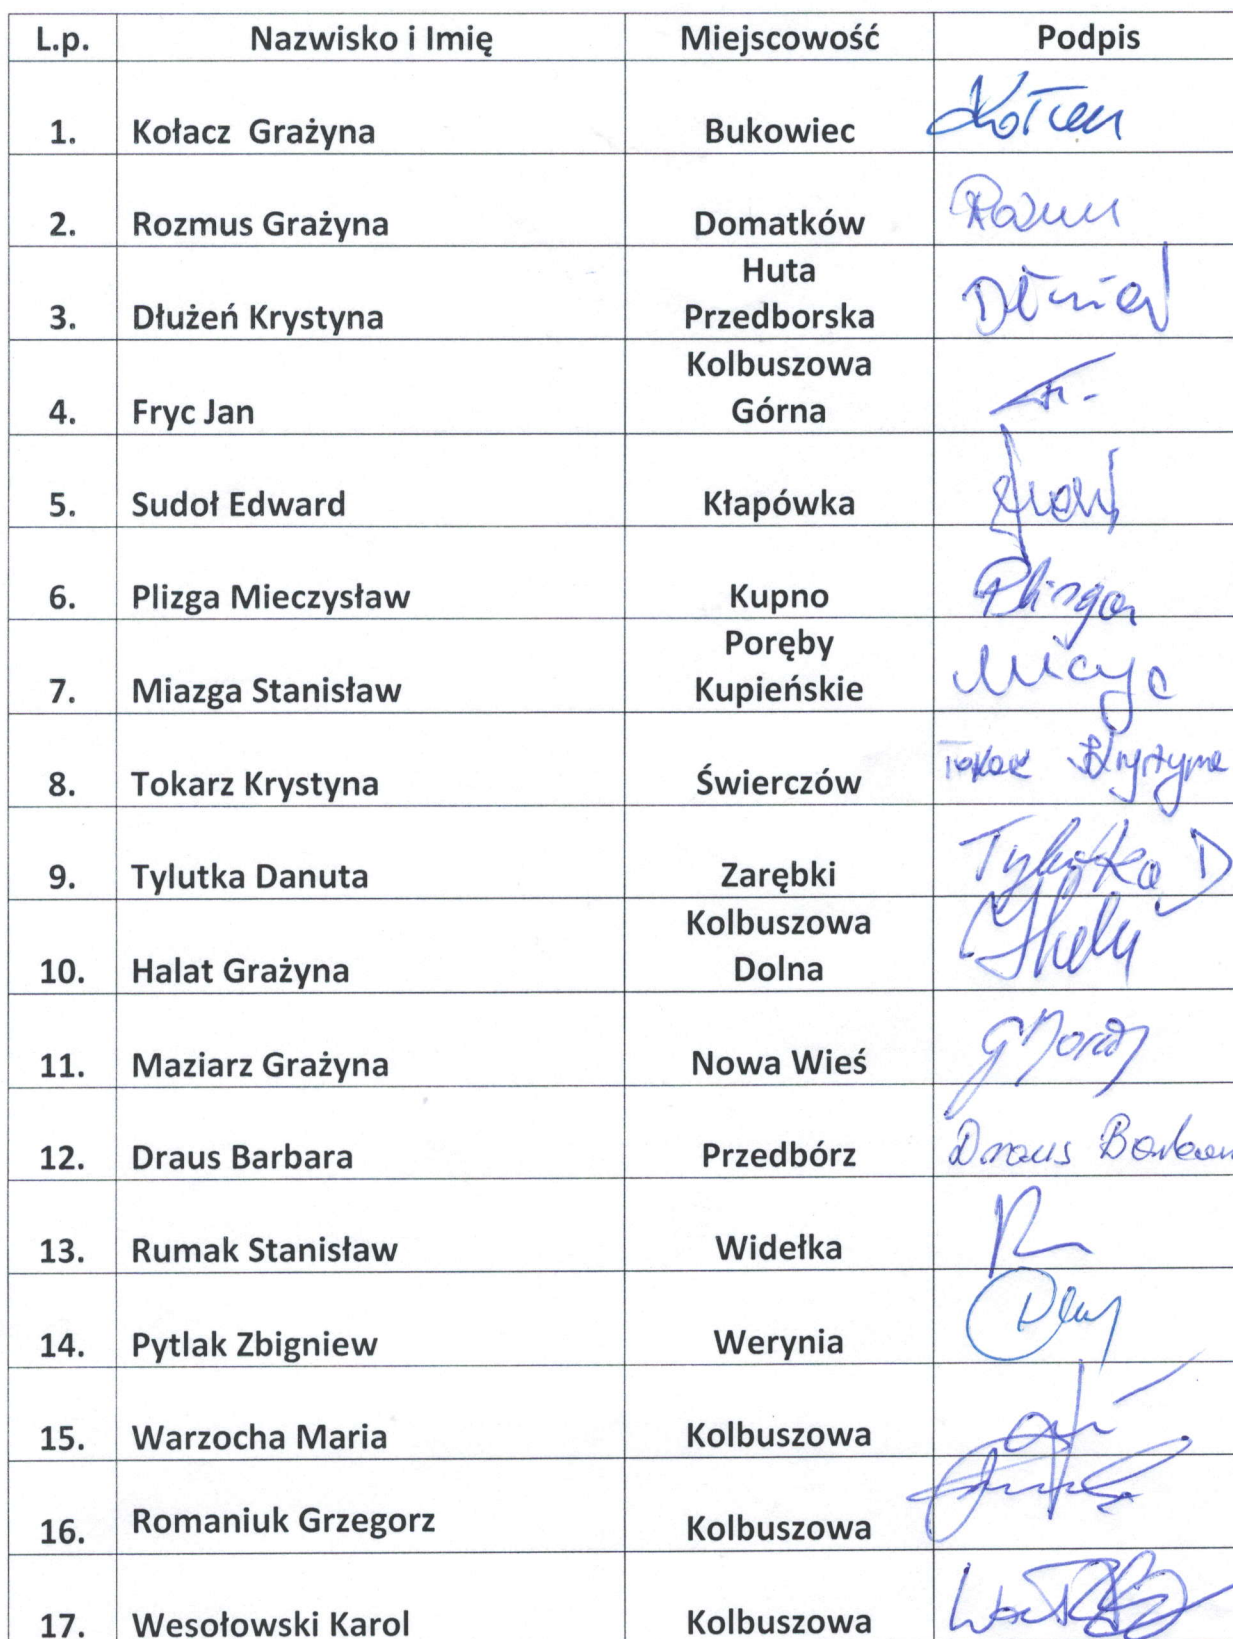 L.p. Nazwisko i Imię Miejscowość Podpis
1. Kołacz Grażyna Bukowiec
2. Rozmus Grażyna Domatków
3. Dłużeń Krystyna Huta
Przedborska
4. Fryc Jan Kolbuszowa
Górna
5. Sudoł Edward Kłapówka
6. Plizga Mieczysław Kupno Plizga
7. Miazga Stanisław Poręby
Kupieńskie
8. Tokarz Krystyna Świerczów Krystyna
9. Tylutka Danuta Zarębki Tylutka D
10. Halat Grażyna Kolbuszowa
Dolna
11. Maziarz Grażyna Nowa Wieś
12. Draus Barbara Przedbórz Draus
13. Rumak Stanisław Widełka
14. Pytlak Zbigniew Werynia
15. Warzocha Maria Kolbuszowa
16. Romaniuk Grzegorz Kolbuszowa
17. Wesołowski Karol Kolbuszowa